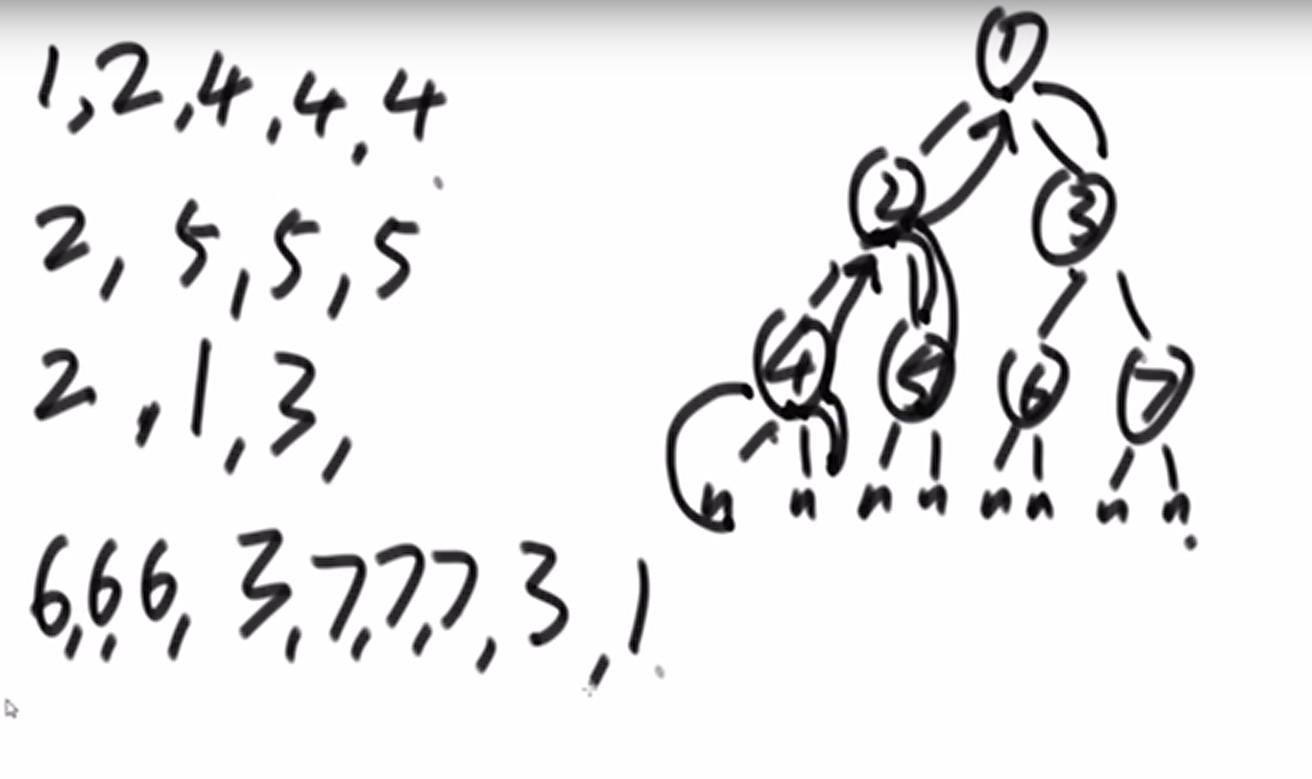 1,2,4,4,4
2,5,5,5
2,1,3,
6,6,6,3,7,7,7,3,1
1
2
3
4
5
6
7
n
n
n
n
n
n
n
n